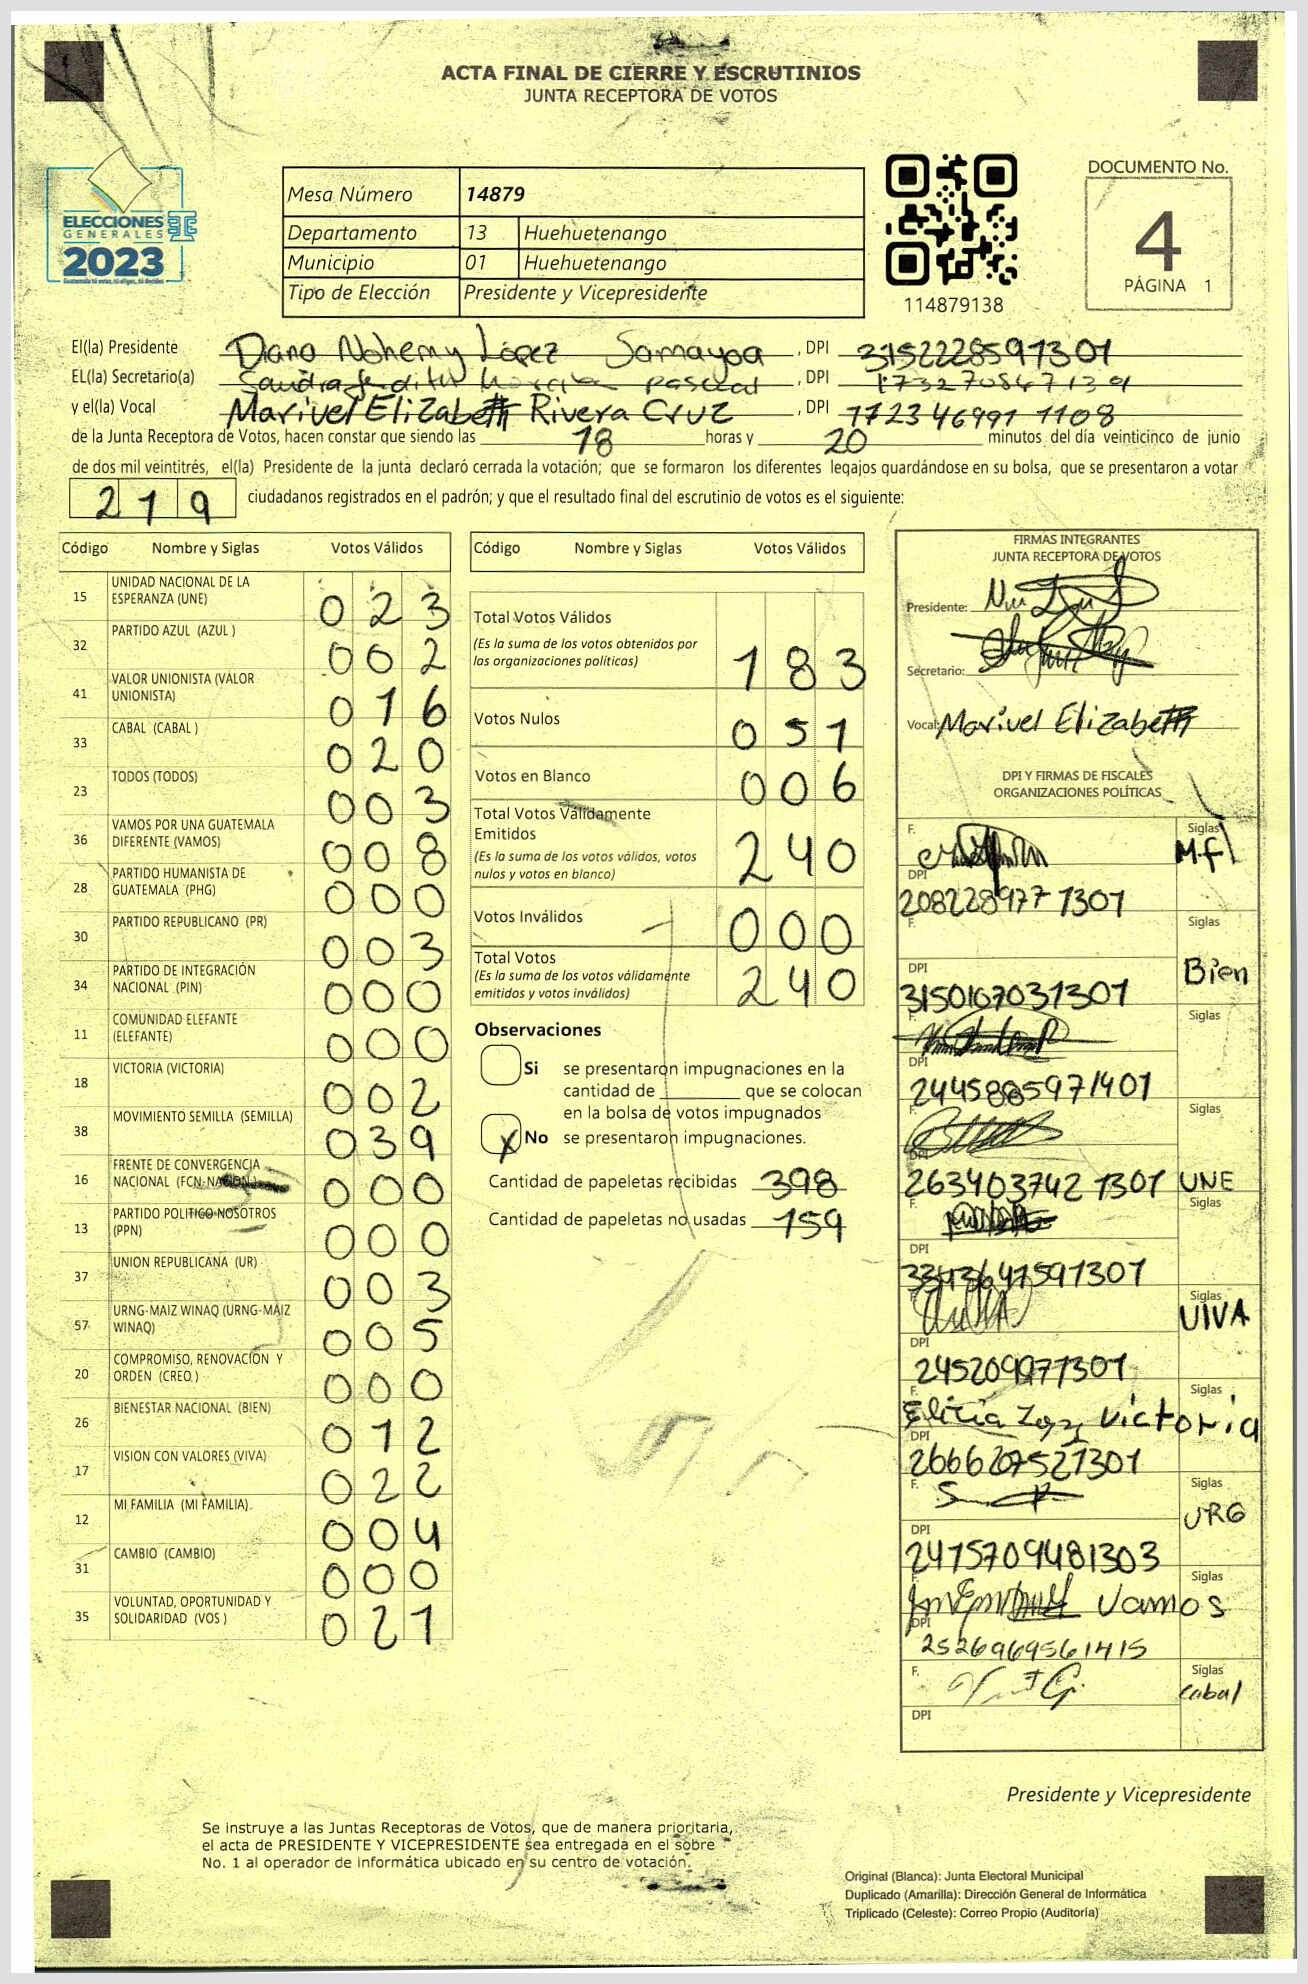 ACTA FINAL DE CIERRE Y ESCRUTINIOS
JUNTA RECEPTORA DE VOTOS
ELECCIONES
GENERALES
2023
Mesa Número 14879
Departamento 13 Huehuetenango
Municipio 01 Huehuetenango
Tipo de Elección Presidente y Vicepresidente
114879138
DOCUMENTO No.
4
PÁGINA 1
El(la) Presidente Diana Nohemy López Samayoa, DPI 3152228591301
EL(la) Secretario(a) Sandra pascual, DPI 1732708471301
y el(la) Vocal Marivel Elizabeth Rivera Cruz, DPI 1723469911108
de la Junta Receptora de Votos, hacen constar que siendo las 18 horas y 20 minutos del día veinticinco de junio
de dos mil veintitrés, el(la) Presidente de la junta declaró cerrada la votación; que se formaron los diferentes legajos guardándose en su bolsa, que se presentaron a votar
219 ciudadanos registrados en el padrón; y que el resultado final del escrutinio de votos es el siguiente:
Código Nombre y Siglas Votos Válidos
15 UNIDAD NACIONAL DE LA ESPERANZA (UNE) 023
32 PARTIDO AZUL (AZUL ) 002
41 VALOR UNIONISTA (VALOR UNIONISTA) 016
33 CABAL (CABAL ) 020
23 TODOS (TODOS) 003
36 VAMOS POR UNA GUATEMALA DIFERENTE (VAMOS) 008
28 PARTIDO HUMANISTA DE GUATEMALA (PHG) 000
30 PARTIDO REPUBLICANO (PR) 003
34 PARTIDO DE INTEGRACIÓN NACIONAL (PIN) 000
11 COMUNIDAD ELEFANTE (ELEFANTE) 000
18 VICTORIA (VICTORIA) 002
38 MOVIMIENTO SEMILLA (SEMILLA) 039
16 FRENTE DE CONVERGENCIA NACIONAL (FCN-NACION ) 000
13 PARTIDO POLITICO NOSOTROS (PPN) 000
37 UNION REPUBLICANA (UR) 003
57 URNG-MAIZ WINAQ (URNG-MAIZ WINAQ) 005
20 COMPROMISO, RENOVACIÓN Y ORDEN (CREO ) 000
26 BIENESTAR NACIONAL (BIEN) 012
17 VISION CON VALORES (VIVA) 022
12 MI FAMILIA (MI FAMILIA) 004
31 CAMBIO (CAMBIO) 000
35 VOLUNTAD, OPORTUNIDAD Y SOLIDARIDAD (VOS ) 021
Código Nombre y Siglas Votos Válidos
Total Votos Válidos 183
(Es la suma de los votos obtenidos por
las organizaciones políticas)
Votos Nulos 051
Votos en Blanco 006
Total Votos Válidamente
Emitidos 240
(Es la suma de los votos válidos, votos
nulos y votos en blanco)
Votos Inválidos 000
Total Votos 240
(Es la suma de los votos válidamente
emitidos y votos inválidos)
Observaciones
Si se presentaron impugnaciones en la
cantidad de ________ que se colocan
en la bolsa de votos impugnados
X No se presentaron impugnaciones.
Cantidad de papeletas recibidas 398
Cantidad de papeletas no usadas 159
FIRMAS INTEGRANTES
JUNTA RECEPTORA DE VOTOS
Presidente:
Secretario:
Vocal: Marivel Elizabeth
DPI Y FIRMAS DE FISCALES
ORGANIZACIONES POLÍTICAS
F. Siglas M.f
DPI 2082289771301
F. Siglas Bien
DPI 3150167031301
F. Siglas
DPI 2445885971401
F. Siglas UNE
DPI 2634037421301
F. Siglas
DPI
F. Siglas VIVA
DPI 245209977301
F. Siglas Victoria
DPI 2666207521301
F. Siglas URG
DPI 2475709481303
F. Siglas Vamos
DPI 2526969561415
F. Siglas Cabal
DPI
Presidente y Vicepresidente
Se instruye a las Juntas Receptoras de Votos, que de manera prioritaria,
el acta de PRESIDENTE Y VICEPRESIDENTE sea entregada en el sobre
No. 1 al operador de informática ubicado en su centro de votación.
Original (Blanca): Junta Electoral Municipal
Duplicado (Amarilla): Dirección General de Informática
Triplicado (Celeste): Correo Propio (Auditoría)